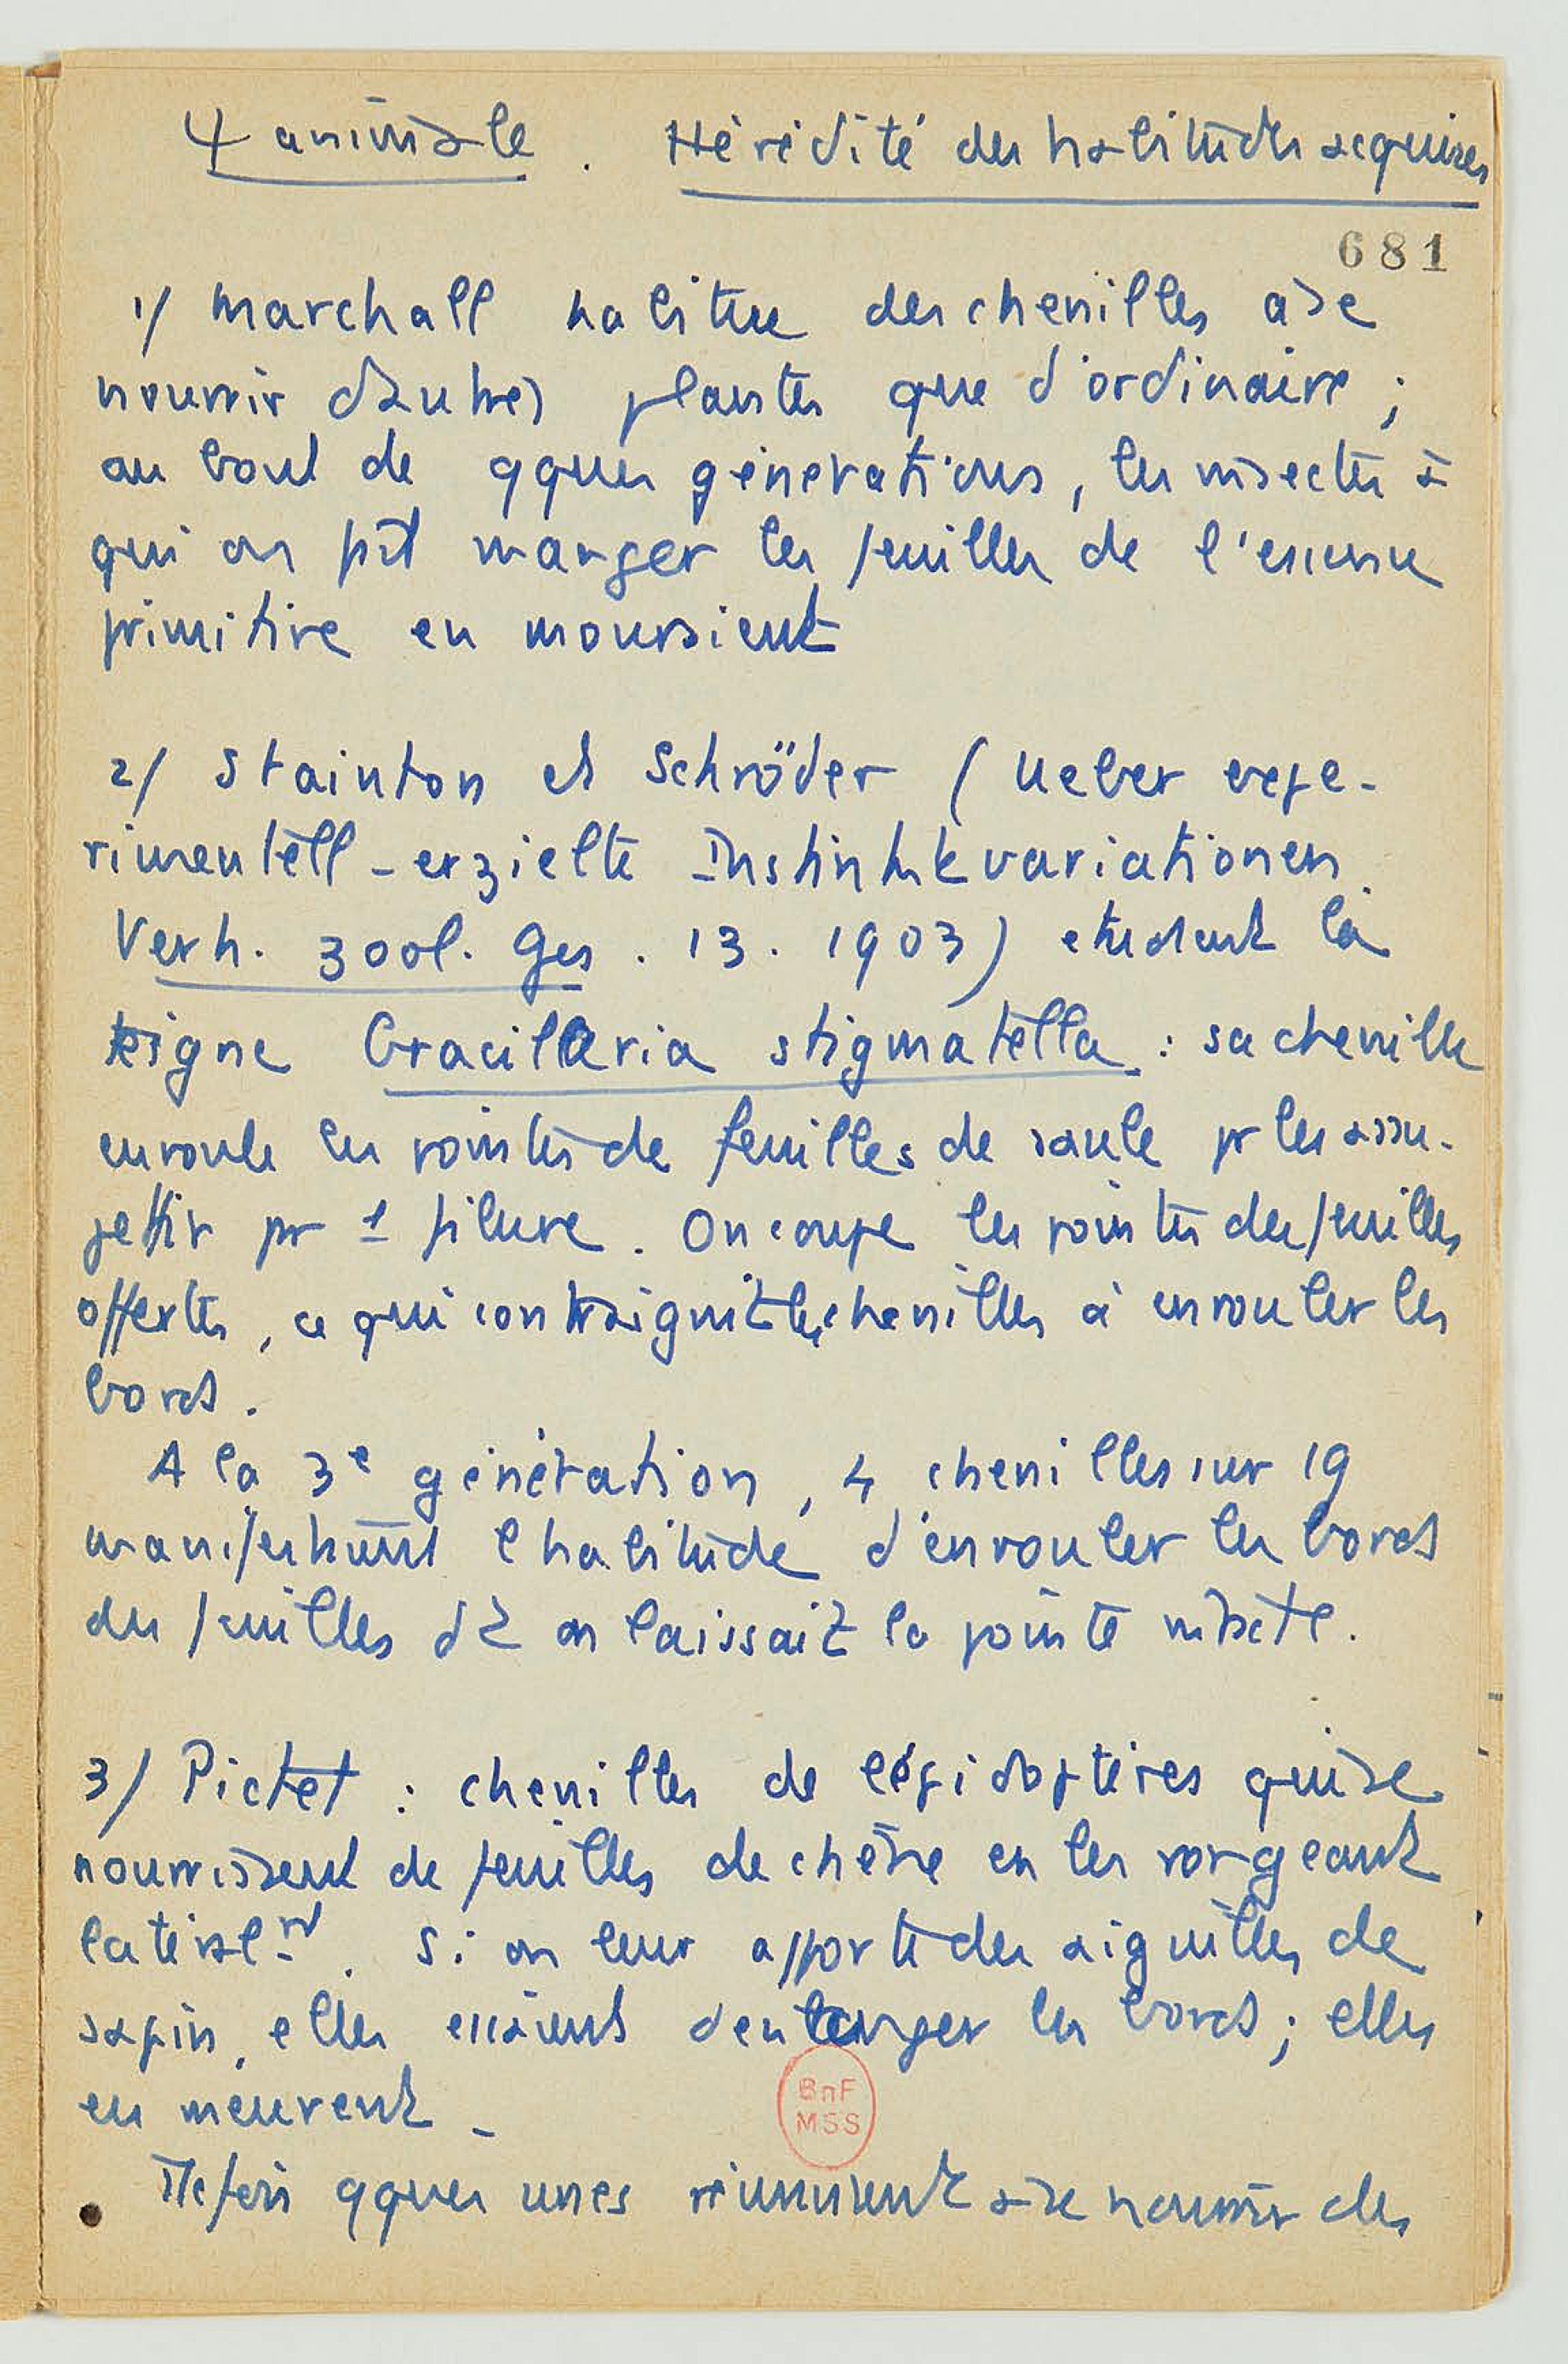 Ψ animale. Hérédité des habitudes acquises
681
1/ Marchall habitue des chenilles à se
nourrir d'autres plantes que d'ordinaire ;
au bout de qques générations, les insectes à
qui on fit manger les feuilles de l'essence
primitive en mouraient
2/ Stainton et Schröder (Ueber expe-
rimentell-erzielte Instinktvariationen.
Verh. zool. Ges. 13. 1903) étudient la
teigne Gracillaria stigmatella : sa chenille
enroule les pointes de feuilles de saule pr les assu-
jettir pr 1 filure. On coupe les pointes des feuilles
offertes, ce qui contraignit les chenilles à enrouler les
bords.
A la 3e génération, 4 chenilles sur 19
manifestèrent l'habitude d'enrouler les bords
des feuilles dt on laissait la pointe intacte.
3/ Pictet : chenilles de lépidoptères qui se
nourrissent de feuilles de chêne en les rongeant
latéralmt. Si on leur apporte des aiguilles de
sapin, elles essaient d'en ronger les bords ; elles
en meurent -
BnF
MSS
Ttefois qques unes réussirent à se nourrir des